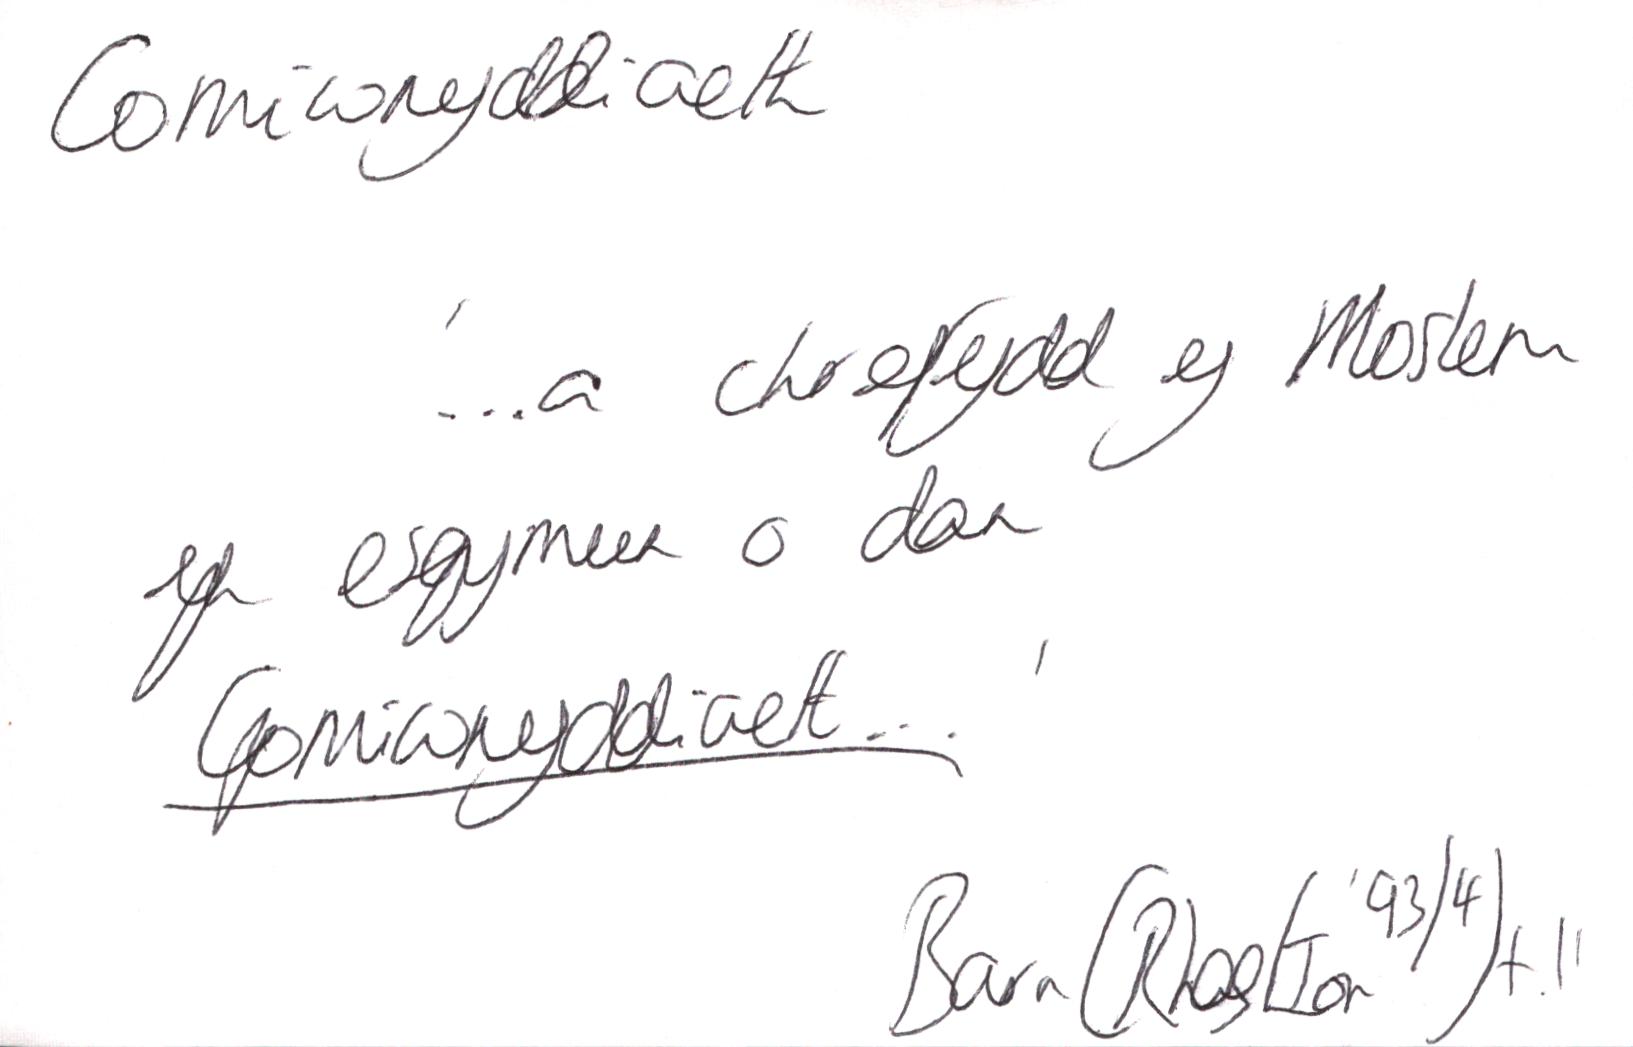 Comiwnyddiaeth
'...a chrefydd y Moslem
yn esgymun o dan
Gomiwnyddiaeth...'
Barn (Rhag/Ion '93/4) t.11